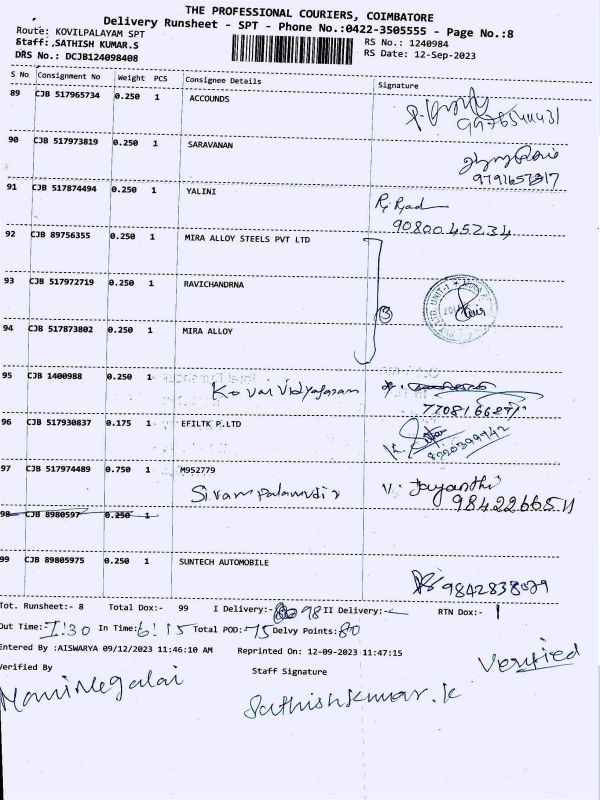 THE PROFESSIONAL COURIERS, COIMBATORE
Delivery Runsheet - SPT - Phone No.:0422-3505555 - Page No.:8
Route: KOVILPALAYAM SPT
Staff: ,SATHISH KUMAR.S
RS No.: 1240984
DRS No.: DCJB124098408
RS Date: 12-Sep-2023
S No Consignment No Weight PCS Consignee Details Signature
89 CJB 517965734 0.250 1 ACCOUNDS
90 CJB 517973819 0.250 1 SARAVANAN
91 CJB 517874494 0.250 1 YALINI
90800 45234
92 CJB 89756355 0.250 1 MIRA ALLOY STEELS PVT LTD
93 CJB 517972719 0.250 1 RAVICHANDRNA
94 CJB 517873802 0.250 1 MIRA ALLOY
95 CJB 1400988 0.250 1 Kovai Vidyasaram
96 CJB 517930837 0.175 1 EFILTK P.LTD
8220399942
97 CJB 517974489 0.750 1 M952779
V. Jayanthi
98 CJB 8980597 0.250 1
99 CJB 89805975 0.250 1 SUNTECH AUTOMOBILE
Tot. Runsheet:- 8 Total Dox:- 99 I Delivery:- 98 II Delivery:- RTN Dox:- 1
Out Time:- 1:30 In Time:- 6:15 Total POD:- 75 Delvy Points:- 80
Entered By :AISWARYA 09/12/2023 11:46:10 AM Reprinted On: 12-09-2023 11:47:15
Verified
Verified By
Staff Signature
Manimegalai
Sathishkumar.k